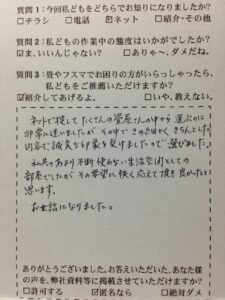 質問1:今回私どもをどちらでお知りになりましたか?
□チラシ □電話 ☑ネット □紹介・その他
質問2:私どもの作業中の態度はいかがでしたか?
☑ま、いいんじゃない? □ありゃ~、ダメだね。
質問3:畳やフスマでお困りの方がいらっしゃったら、
私どもをご推薦いただけますか?
☑紹介してあげるよ。 □いや、教えない。
ネットで捜して たくさんの畳屋さんの中から 選ぶのに
非常に迷いましたが その中で きめ細かく きちんとした
内容で誠実な印象を受けましたので 選びました。
私共のあまり 不断 使わない生活空間としての
部屋でしたが その要望に 快く応えて頂き 良かったと
思います。
お世話になりました。
ありがとうございました。お答えいただいた、あなた様
の声を、弊社資料等に掲載させていただけますか?
□許可する ☑匿名なら □絶対ダメ